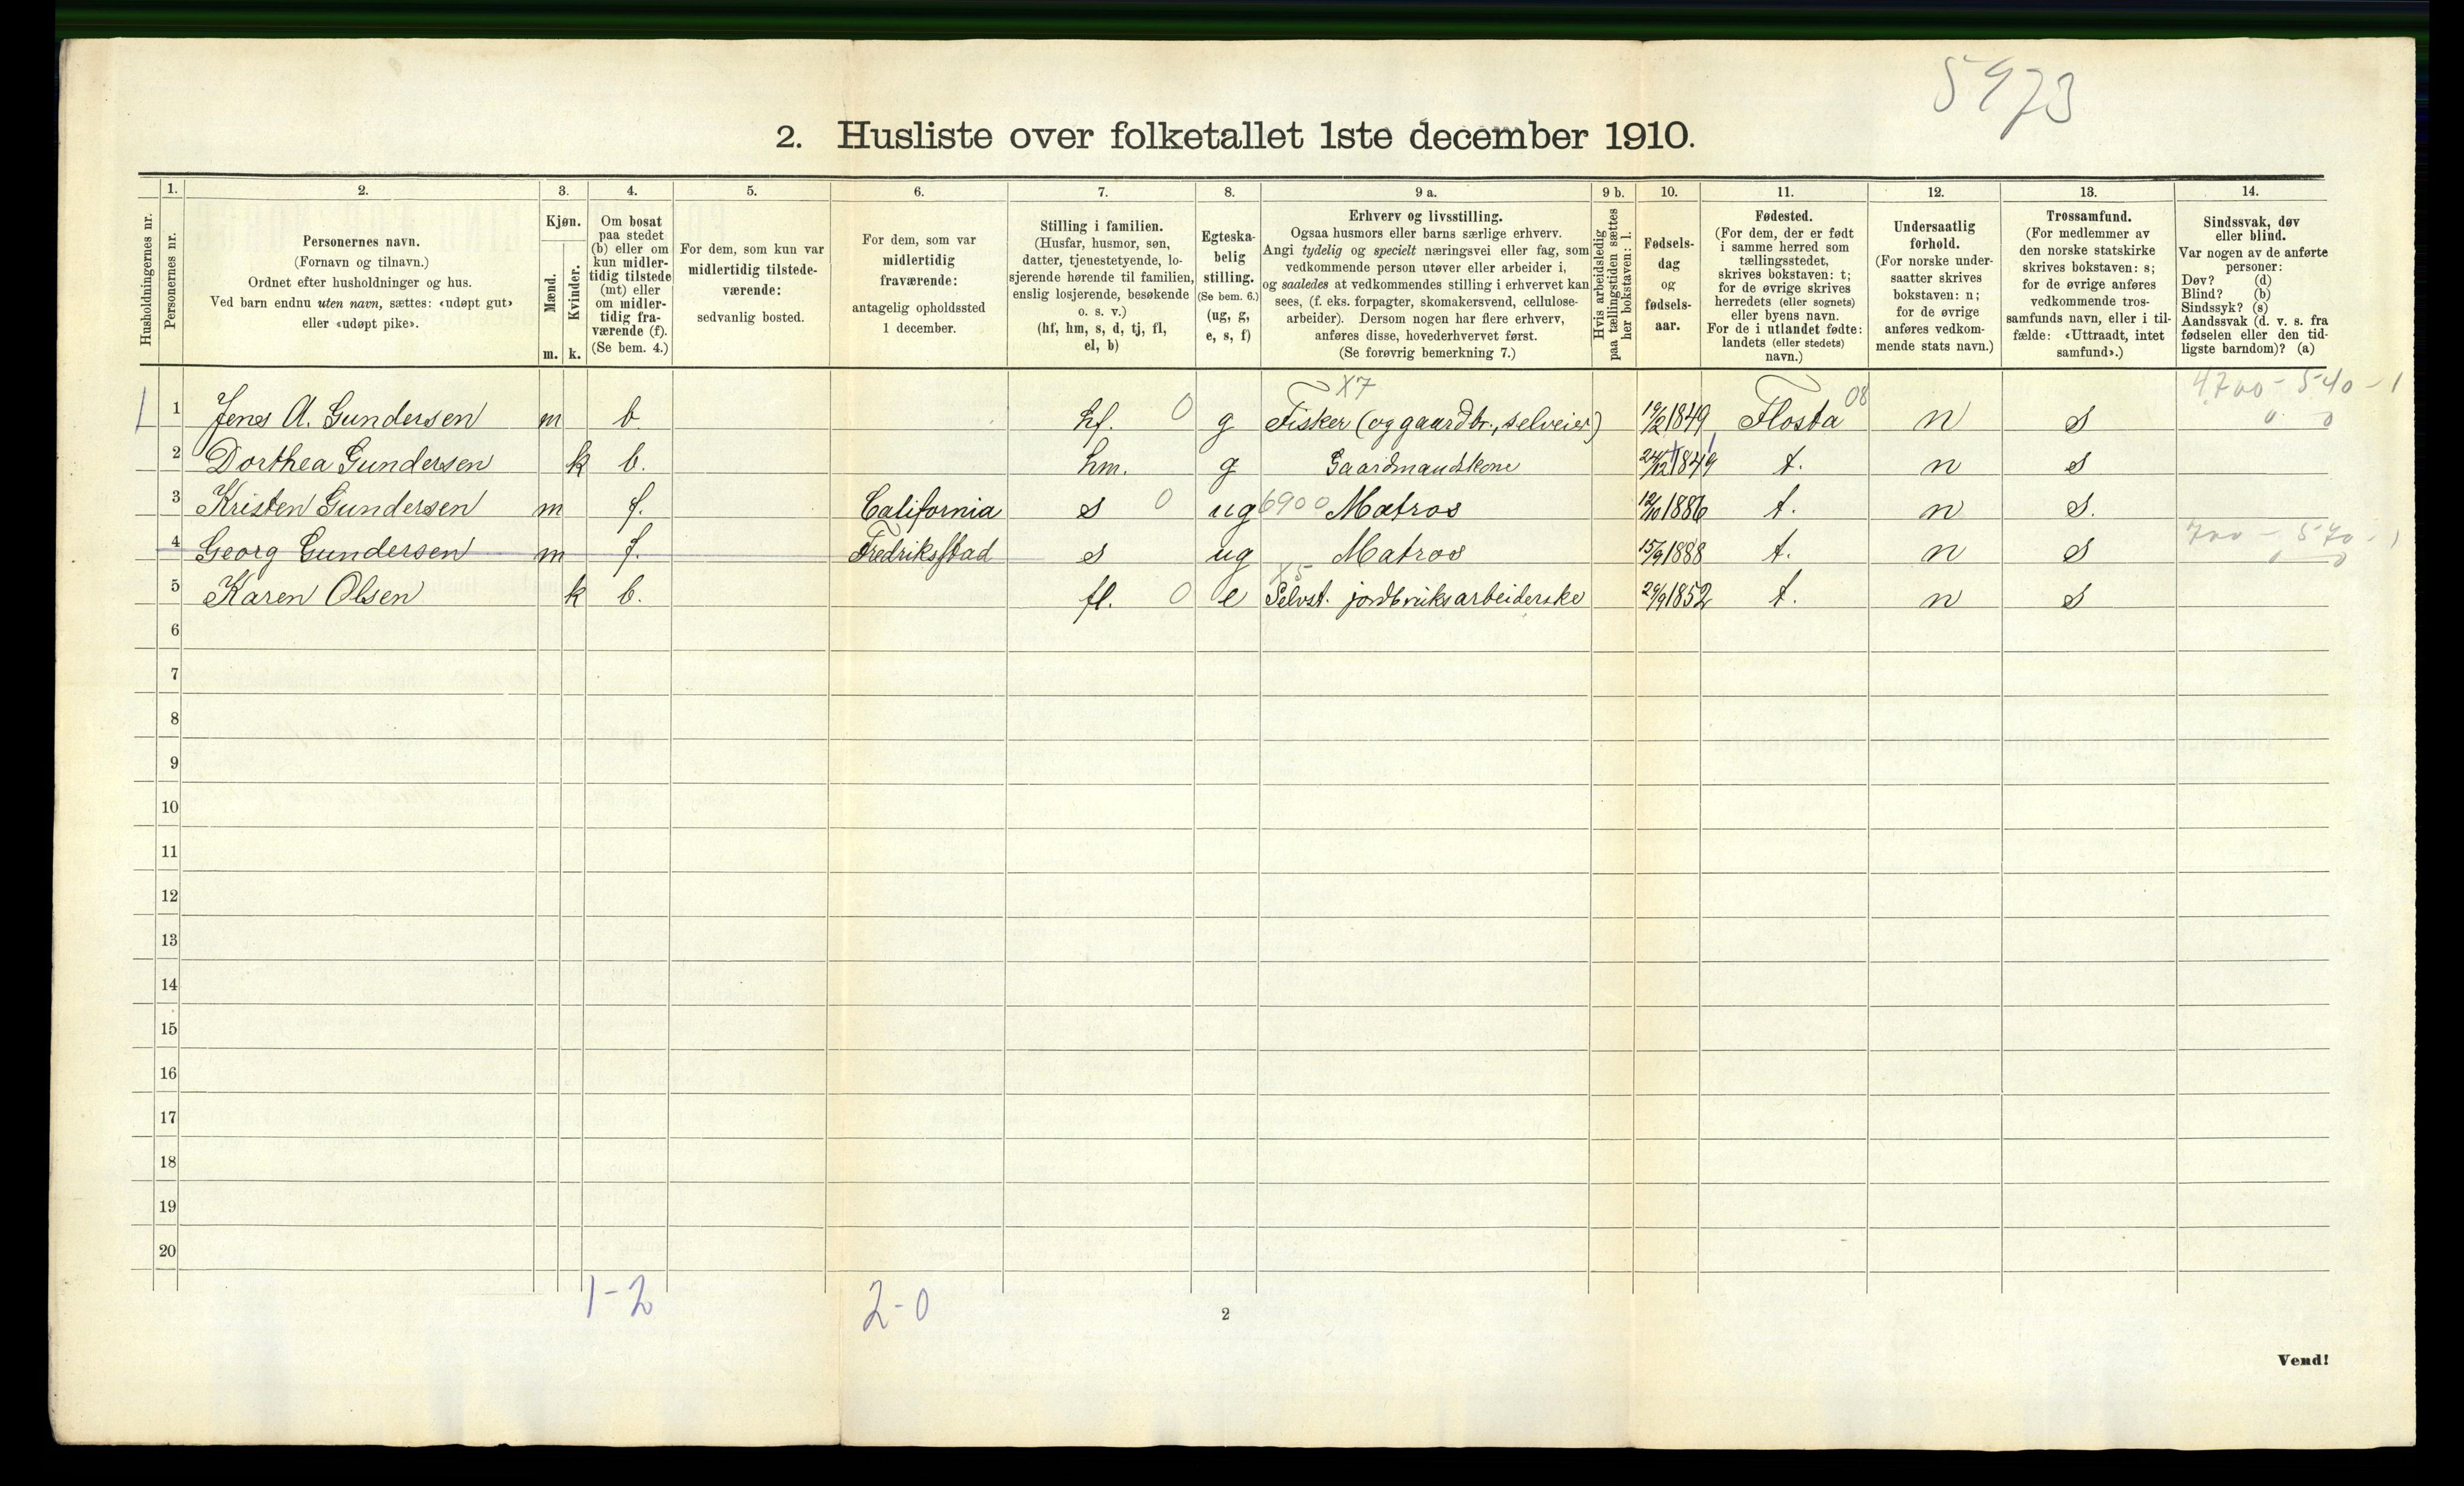 5973
2. Husliste over folketallet 1ste december 1910.
Husholdningernes nr.
1.
Personernes nr.
2.
Personernes navn.
(Fornavn og tilnavn.)
Ordnet efter husholdninger og hus.
Ved barn endnu uten navn, sættes: «udøpt gut»
eller «udøpt pike».
3.
Kjøn.
Mænd.
Kvinder.
m. k.
4.
Om bosat
paa stedet
(b) eller om
kun midler-
tidig tilstede
(mt) eller
om midler-
tidig fra-
værende (f).
(Se bem. 4.)
5.
For dem, som kun var
midlertidig tilstede-
værende:
sedvanlig bosted.
6.
For dem, som var
midlertidig
fraværende:
antagelig opholdssted
1 december.
7.
Stilling i familien.
(Husfar, husmor, søn,
datter, tjenestetyende, lo-
sjerende hørende til familien,
enslig losjerende, besøkende
o. s. v.)
(hf, hm, s, d, tj, fl,
el, b)
8.
Egteska-
belig
stilling.
(Se bem. 6.)
(ug, g,
e, s, f)
9 a.
Erhverv og livsstilling.
Ogsaa husmors eller barns særlige erhverv.
Angi tydelig og specielt næringsvei eller fag, som
vedkommende person utøver eller arbeider i,
og saaledes at vedkommendes stilling i erhvervet kan
sees, (f. eks. forpagter, skomakersvend, cellulose-
arbeider). Dersom nogen har flere erhverv,
anføres disse, hovederhvervet først.
(Se forøvrig bemerkning 7.)
9 b.
Hvis arbeidsledig
paa tællingstiden sættes
her bokstaven: l.
10.
Fødsels-
dag
og
fødsels-
aar.
11.
Fødested.
(For dem, der er født
i samme herred som
tællingsstedet,
skrives bokstaven: t;
for de øvrige skrives
herredets (eller sognets)
eller byens navn.
For de i utlandet fødte:
landets (eller stedets)
navn.)
12.
Undersaatlig
forhold.
(For norske under-
saatter skrives
bokstaven: n;
for de øvrige
anføres vedkom-
mende stats navn.)
13.
Trossamfund.
(For medlemmer av
den norske statskirke
skrives bokstaven: s;
for de øvrige anføres
vedkommende tros-
samfunds navn, eller i til-
fælde: «Uttraadt, intet
samfund».)
14.
Sindssvak, døv
eller blind.
Var nogen av de anførte
personer:
Døv? (d)
Blind? (b)
Sindssyk? (s)
Aandssvak (d. v. s. fra
fødselen eller den tid-
ligste barndom)? (a)
X7 08 4700 - 540 - 1
1 1 Jens A. Gundersen m b hf. 0 g Fisker (og gaardbr., selveier) 1849 Flosta n s 0 0
2 Dorthea Gundersen k b. hm. g Gaardmandskone 24/12 1849 t. n s
3 Kristen Gundersen m f. California s 0 ug 6900 Matros 12/10 1886 t. n s.
4 Georg Gundersen m f. Fredriksstad s ug Matros 15/9 1888 t. n s 700 - 570 - 1
X5 0 0
5 Karen Olsen k b. fl. 0 e Selvst. jordbruksarbeiderske 29/9 1852 t. n s
6
7
8
9
10
11
12
13
14
15
16
17
18
19
20
1-2 2-0
2
Vend!